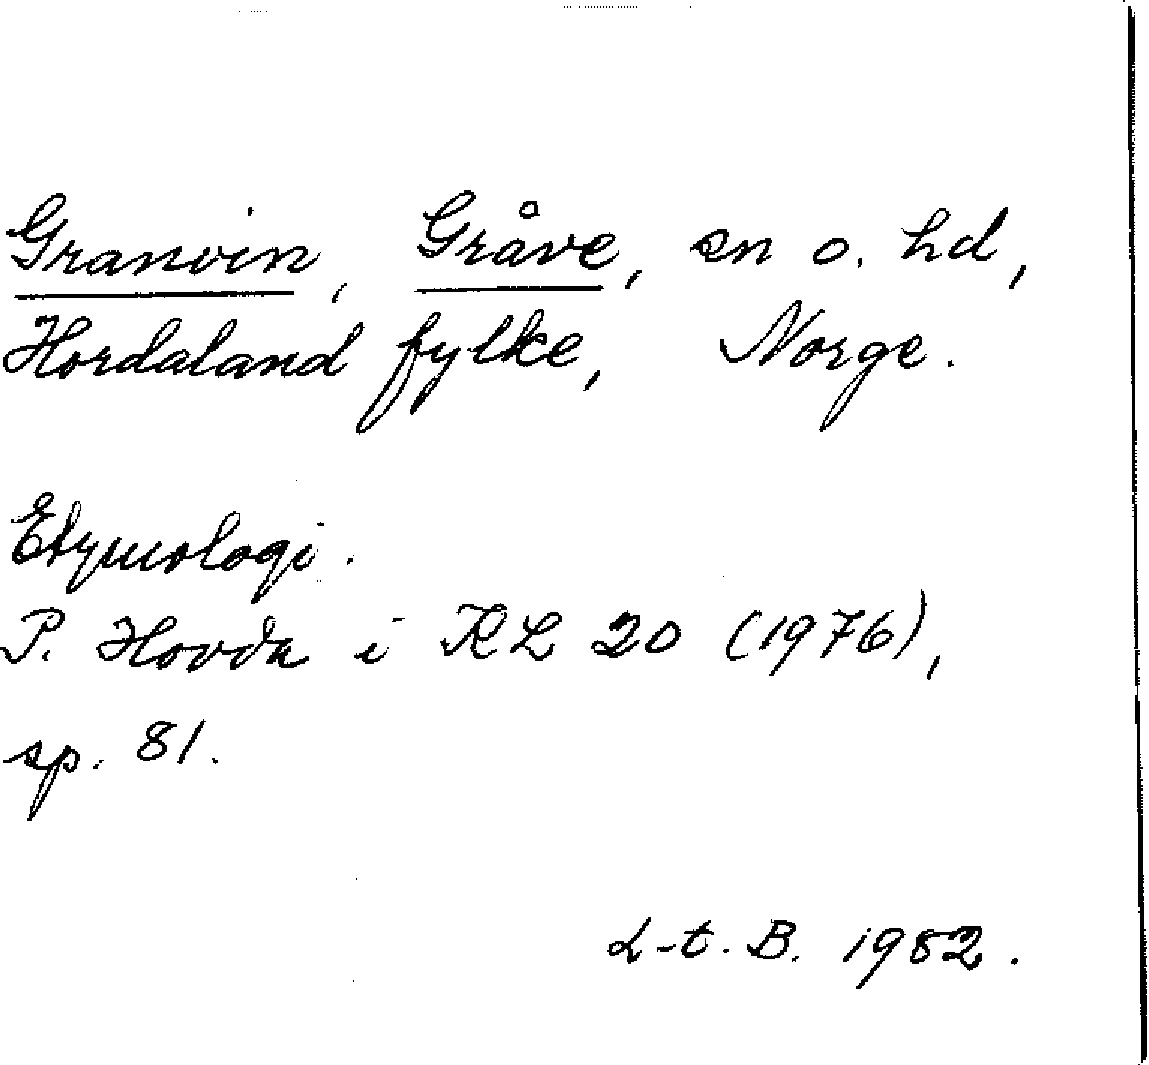 Granvin, Gråve, sn o. hd,
Hordaland fylke, Norge.
Etymologi.
P. Hovda i KL 20 (1976),
sp. 81.
L-t. B. 1982.